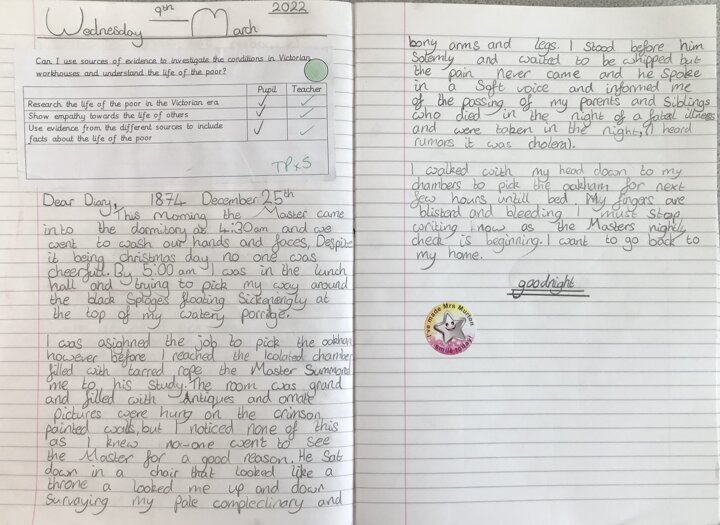 Wednesday 9th March 2022
Can I use sources of evidence to investigate the conditions in Victorian
workhouses and understand the life of the poor?
Pupil Teacher
Research the life of the poor in the Victorian era ✓ ✓
Show empathy towards the life of others ✓ ✓
Use evidence from the different sources to include ✓ ✓
facts about the life of the poor
TPxS
Dear Diary, 1874 December 25th
This morning the Master came
into the dormitory at 4:30am and we
went to wash our hands and faces, Despite
it being christmas day no one was
cheerful. By 5:00 am I was in the lunch
hall and trying to pick my way around
the black Sploges floating Sickeningly at
the top of my watery porrige.
I was asighned the job to pick the oakham
however before I reached the Icolated chamber
filled with tarred rope the Master Summond
me to his study. The room was grand
and filled with Antiques and ornate
pictures were hung on the crimson
painted walls, but I noticed none of this
as I knew no-one went to see
the Master for a good reason. He sat
down in a chair that looked like a
throne a looked me up and down
Surveying my pale complectinary and
bony arms and legs. I stood before him
Solemly and waited to be whipped but
the pain never came and he spoke
in a Soft voice and informed me
of the passing of my parents and Siblings
who died in the night of a fatal illness
and were taken in the night, (I heard
rumors it was cholera).
I walked with my head down to my
chambers to pick the oakham for next
few hours untill bed. My fingers are
blisterd and bleeding I must Stop
writing now as the Masters night
check is beginning. I want to go back to
my home.
goodnight
I've made Mrs Murton
Smile today!